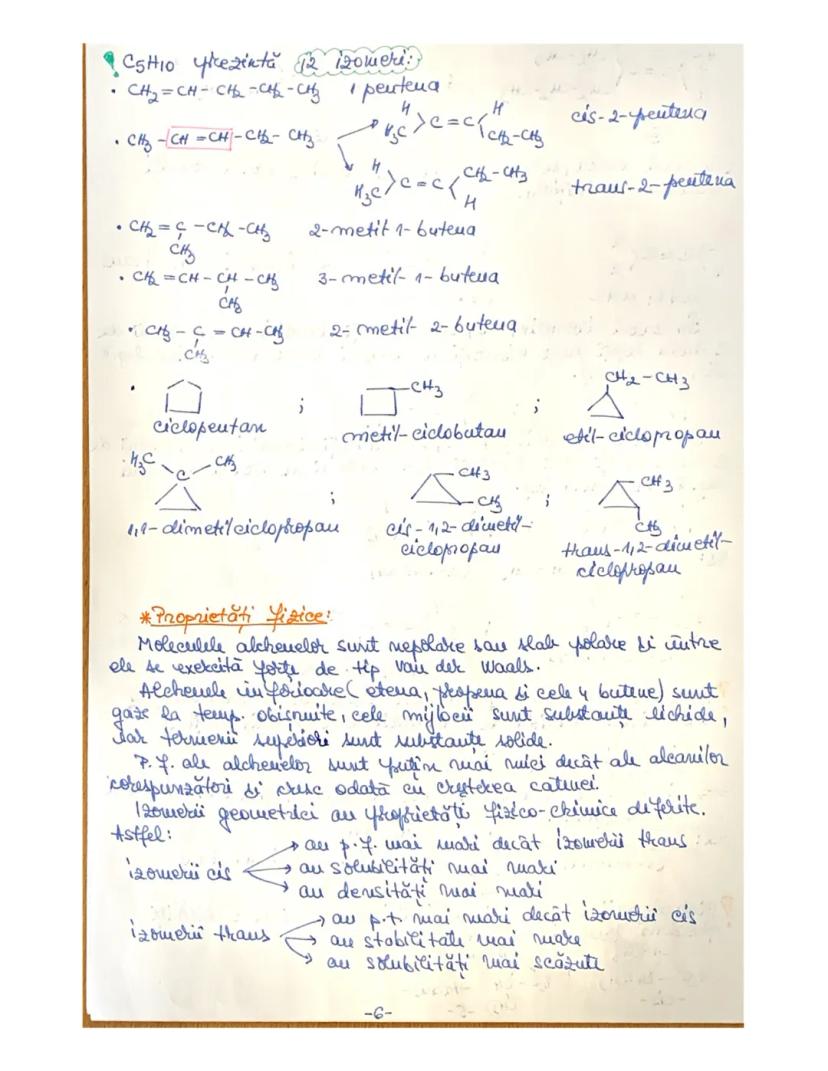 ! C5H10 prezintă 12 izomeri:
• CH2=CH-CH2-CH2-CH3 1 pentena
• CH3-CH=CH-CH2-CH3
H H
H3C >C=C< CH2-CH3 cis-2-pentena
H CH2-CH3
H3C >C=C< H trans-2-pentena
• CH2=C-CH2-CH3 2-metil 1-butena
CH3
• CH2=CH-CH-CH3 3-metil-1-butena
CH3
• CH3-C=CH-CH3 2-metil-2-butena
CH3
• CH3 CH2-CH3
ciclopentan ; metil-ciclobutan ; etil-ciclopropan
H3C C CH3 ; CH3 CH3 ; CH3 CH3
1,1-dimetilciclopropan
cis-1,2-dimetil-
ciclopropan
trans-1,2-dimetil-
ciclopropan
*Proprietăți fizice:
Moleculele alchenelor sunt nepolare sau slab polare și între
ele se exercită forțe de tip Van der Waals.
Alchenele inferioare (etena, propena și cele 4 butene) sunt
gaze la temp. obișnuite, cele mijlocii sunt substanțe lichide,
iar termenii superiori sunt substanțe solide.
P.f. ale alchenelor sunt puțin mai mici decât ale alcanilor
corespunzători și cresc odată cu creșterea catenei.
Izomerii geometrici au proprietăți fizico-chimice diferite.
Astfel:
izomerii cis
→ au p.f. mai mari decât izomerii trans
→ au solubilități mai mari
→ au densități mai mari
izomerii trans
→ au p.t. mai mari decât izomerii cis
→ au stabilitate mai mare
→ au solubilități mai scăzute
-6-